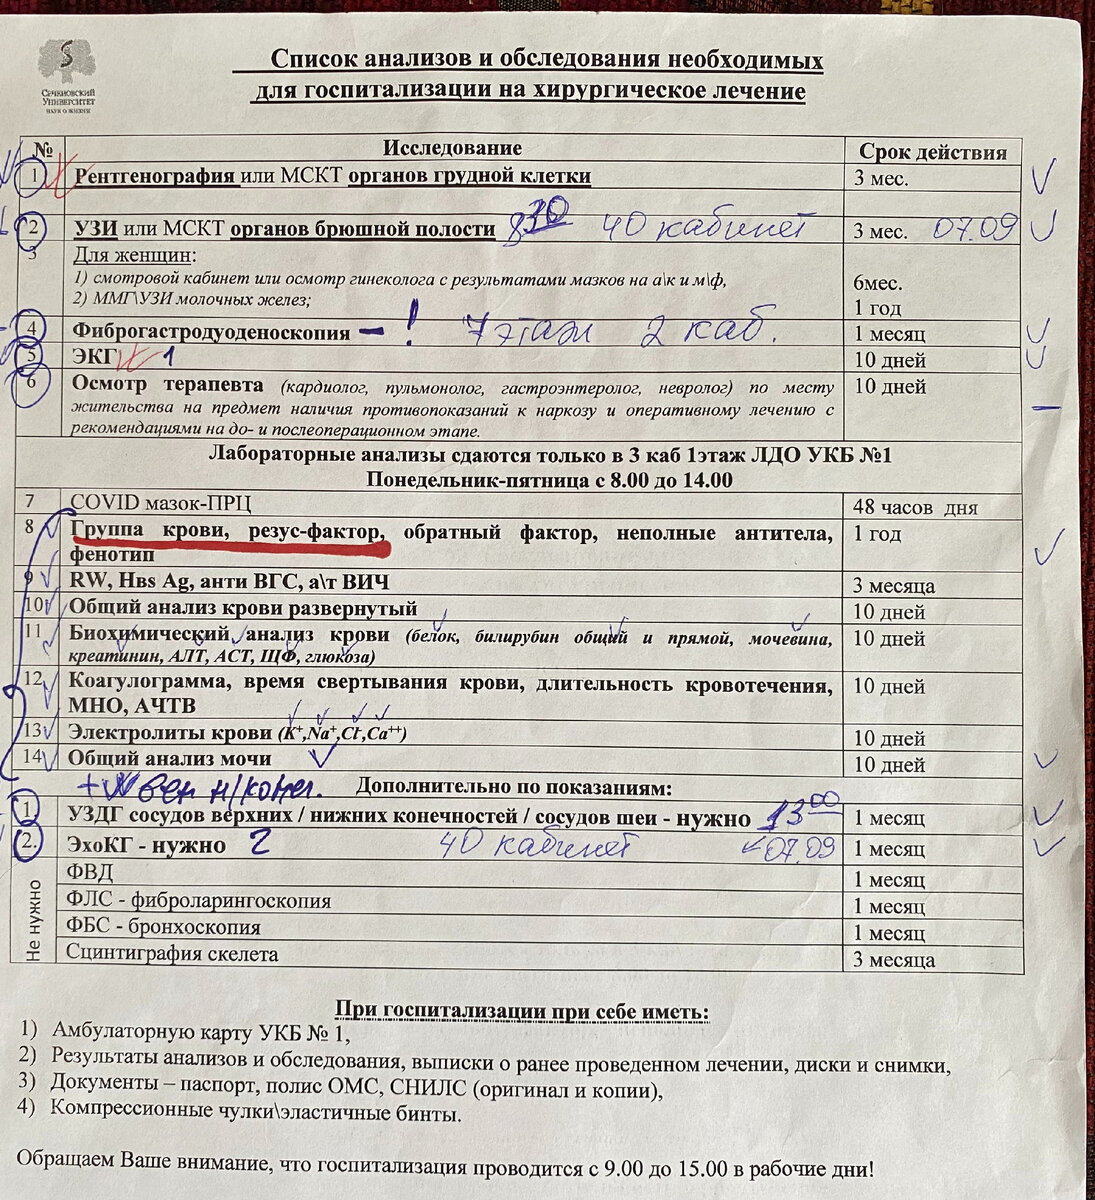 Список анализов и обследования необходимых
для госпитализации на хирургическое лечение
Сеченовский
Университет
наук о жизни
№ Исследование Срок действия
1 Рентгенография или МСКТ органов грудной клетки 3 мес.
2 УЗИ или МСКТ органов брюшной полости 8 30 40 кабинет 3 мес. 07.09
3 Для женщин:
1) смотровой кабинет или осмотр гинеколога с результатами мазков на а\к и м\ф, 6мес.
2) ММГ\УЗИ молочных желез; 1 год
4 Фиброгастродуоденоскопия - ! 7 этаж 2 каб. 1 месяц
5 ЭКГ 1 10 дней
6 Осмотр терапевта (кардиолог, пульмонолог, гастроэнтеролог, невролог) по месту 10 дней
жительства на предмет наличия противопоказаний к наркозу и оперативному лечению с
рекомендациями на до- и послеоперационном этапе.
Лабораторные анализы сдаются только в 3 каб 1этаж ЛДО УКБ №1
Понедельник-пятница с 8.00 до 14.00
7 COVID мазок-ПРЦ 48 часов дня
8 Группа крови, резус-фактор, обратный фактор, неполные антитела, 1 год
фенотип
9 RW, Hвs Ag, анти ВГС, а\т ВИЧ 3 месяца
10 Общий анализ крови развернутый 10 дней
11 Биохимический анализ крови (белок, билирубин общий и прямой, мочевина, 10 дней
креатинин, АЛТ, АСТ, ЩФ, глюкоза)
12 Коагулограмма, время свертывания крови, длительность кровотечения, 10 дней
МНО, АЧТВ
13 Электролиты крови (K+,Na+,Cl-,Ca++) 10 дней
14 Общий анализ мочи 10 дней
+ вен н/конеч. Дополнительно по показаниям:
1 УЗДГ сосудов верхних / нижних конечностей / сосудов шеи - нужно 13 00 1 месяц
2. ЭхоКГ - нужно 2 40 кабинет 07.09 1 месяц
Не нужно
ФВД 1 месяц
ФЛС - фиброларингоскопия 1 месяц
ФБС - бронхоскопия 1 месяц
Сцинтиграфия скелета 3 месяца
При госпитализации при себе иметь:
1) Амбулаторную карту УКБ № 1,
2) Результаты анализов и обследования, выписки о ранее проведенном лечении, диски и снимки,
3) Документы – паспорт, полис ОМС, СНИЛС (оригинал и копии),
4) Компрессионные чулки\эластичные бинты.
Обращаем Ваше внимание, что госпитализация проводится с 9.00 до 15.00 в рабочие дни!